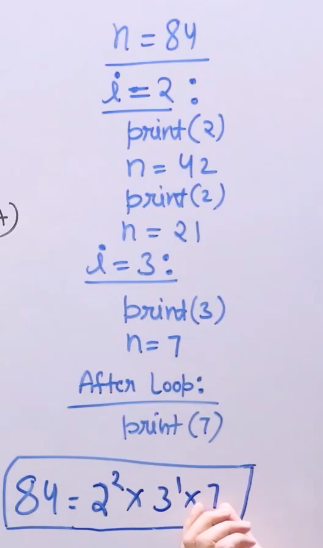 n = 84
i = 2 :
print(2)
n = 42
print(2)
n = 21
i = 3 :
print(3)
n = 7
After Loop:
print(7)
84 = 2² × 3¹ × 7